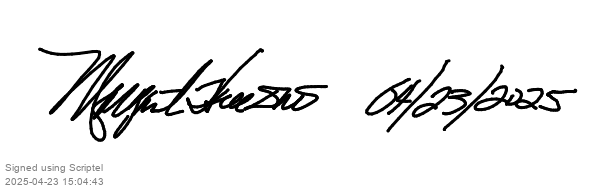 04/23/2025
Signed using Scriptel
2025-04-23 15:04:43